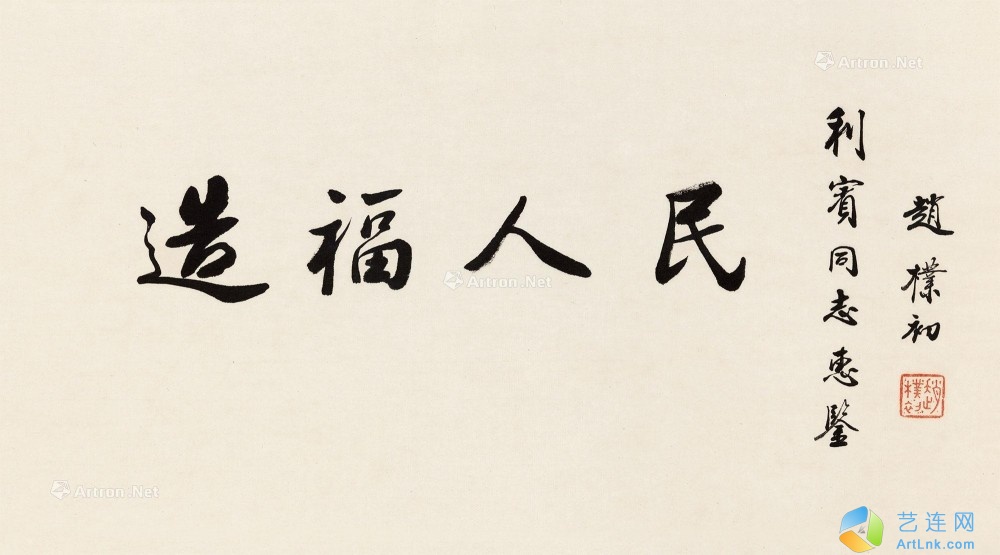 造福人民
利賓同志惠鑒
趙樸初
趙樸初
Artron.Net
Artron.Net
Artron.Net
艺连网
ArtLnk.com